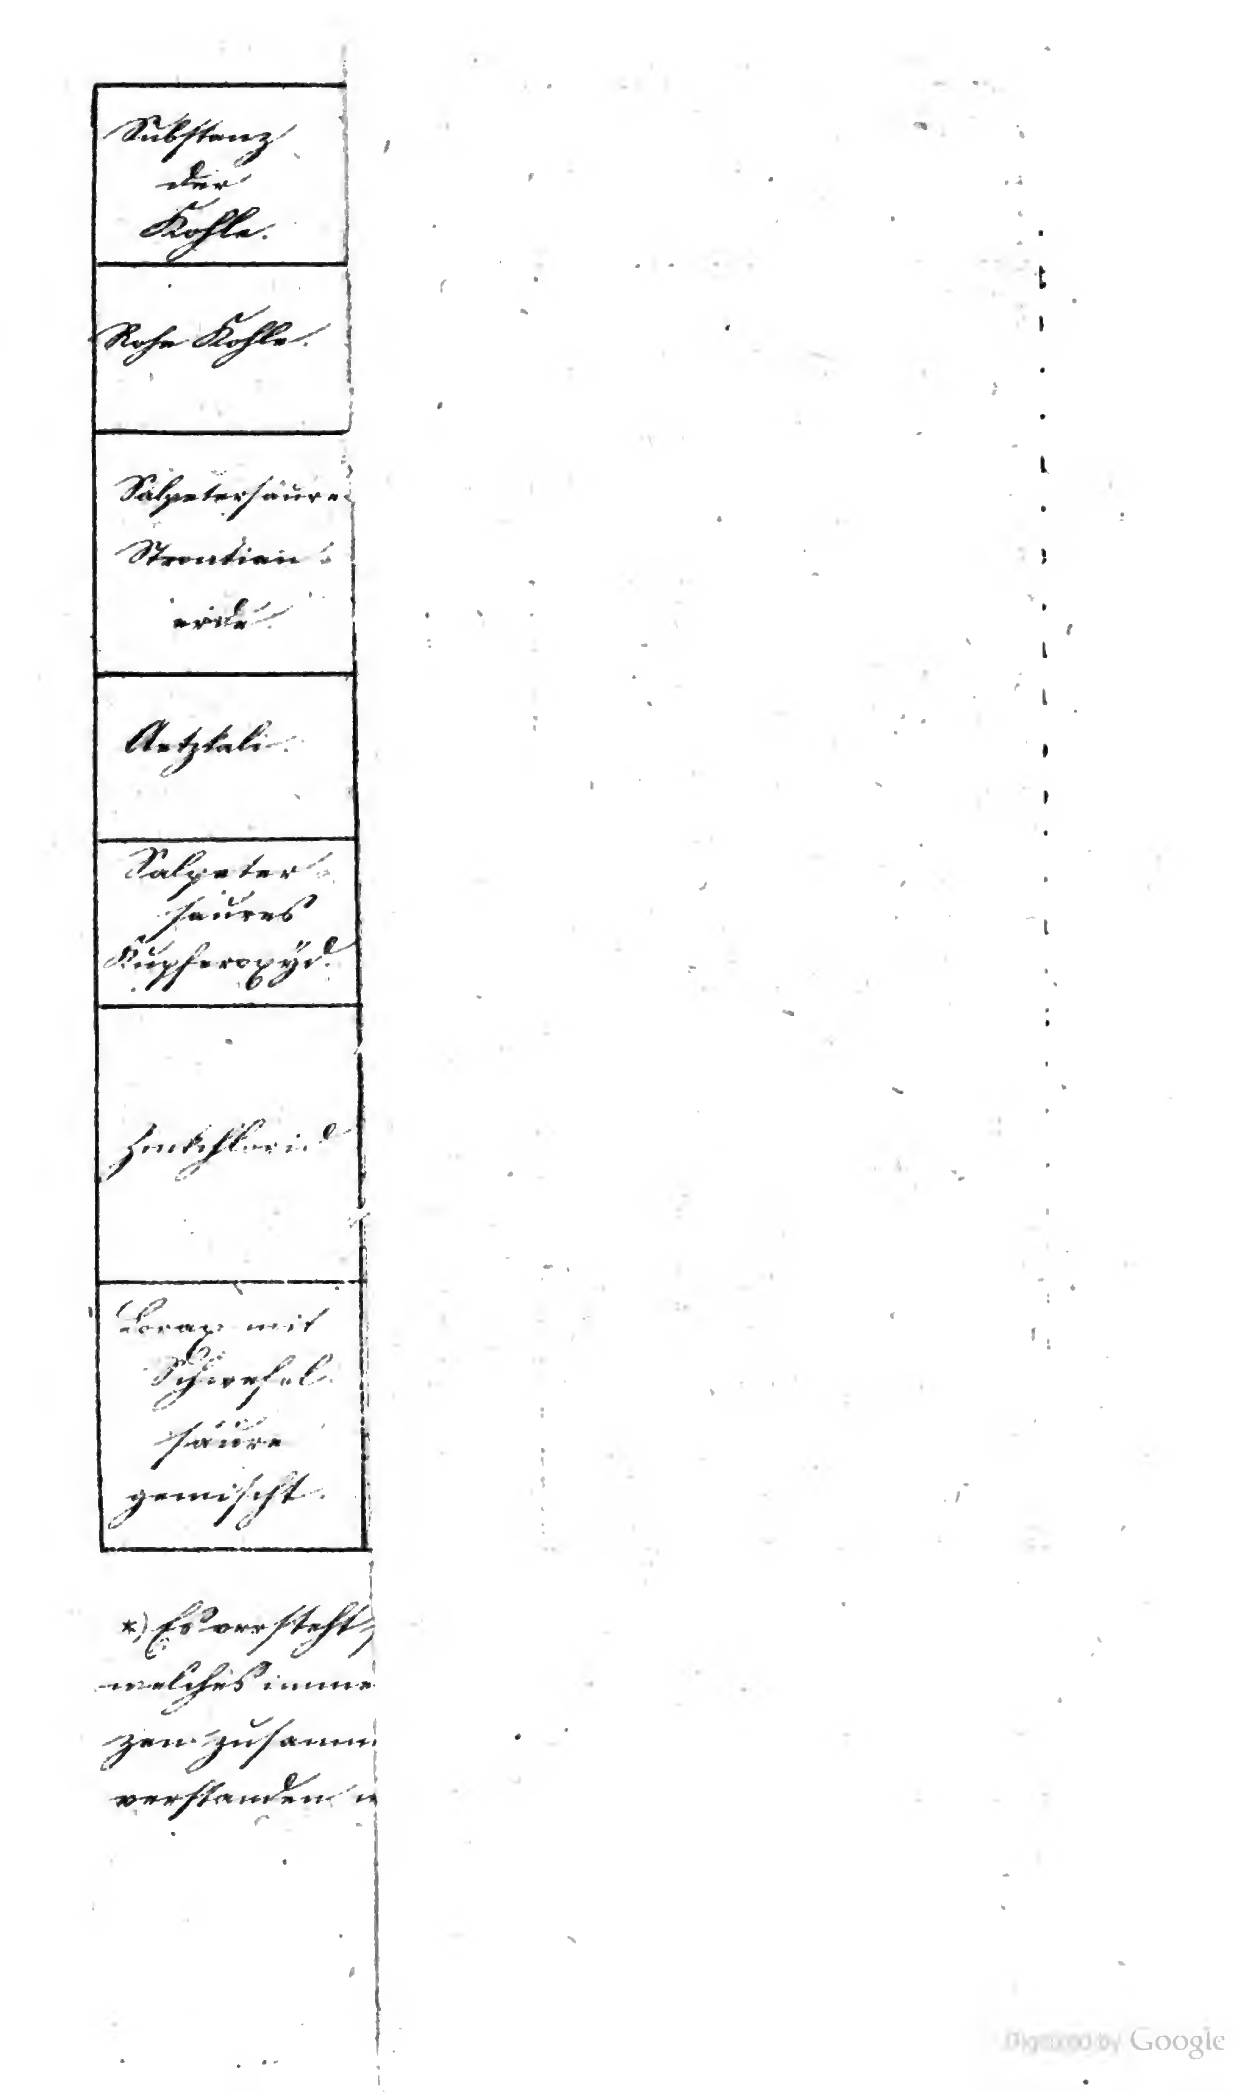 Substanz
der
Kohle.
Rohe Kohle.
Salpetersaure
Strontian-
erde.
Aetzkali.
Salpeter-
saures
Kupferoxÿd.
Zinkchlorid
Borax mit
Schwefel-
säure
gemischt.
*) Es versteht
welches imme
zen zusamm
verstanden w
Digitized by Google